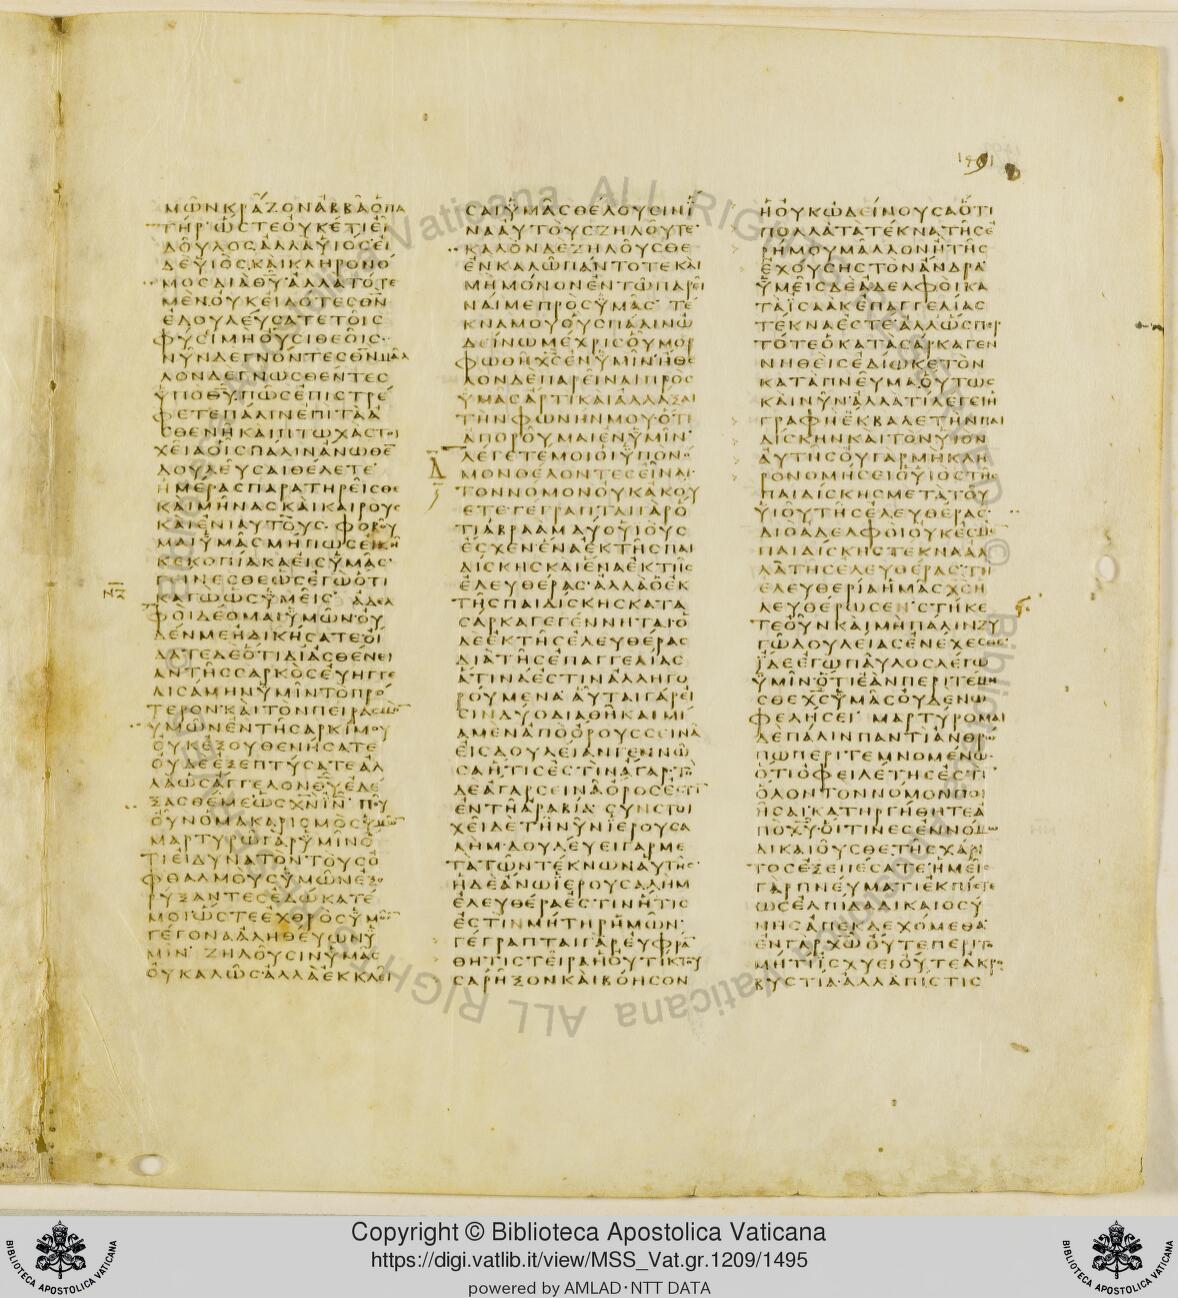 1491
ΜΩΝΚΡΑΖΟΝΑΒΒΑΟΠΑ
ΤΗΡΩΣΤΕΟΥΚΕΤΙΕΙ
ΔΟΥΛΟΣΑΛΛΑΥΙΟΣΕΙ
ΔΕΥΙΟΣΚΑΙΚΛΗΡΟΝΟ
ΜΟΣΔΙΑΘΥΑΛΛΑΤΟΤΕ
ΜΕΝΟΥΚΕΙΔΟΤΕΣΘΝ
ΕΔΟΥΛΕΥΣΑΤΕΤΟΙΣ
ΦΥΣΙΜΗΟΥΣΙΘΕΟΙΣ
ΝΥΝΔΕΓΝΟΝΤΕΣΘΝΜΑΛ
ΛΟΝΔΕΓΝΩΣΘΕΝΤΕΣ
ΥΠΟΘΥΠΩΣΕΠΙΣΤΡΕ
ΦΕΤΕΠΑΛΙΝΕΠΙΤΑΑ
ΣΘΕΝΗΚΑΙΠΤΩΧΑΣΤΟΙ
ΧΕΙΑΟΙΣΠΑΛΙΝΑΝΩΘΕ
ΔΟΥΛΕΥΣΑΙΘΕΛΕΤΕ
ΗΜΕΡΑΣΠΑΡΑΤΗΡΕΙΣΘΕ
ΚΑΙΜΗΝΑΣΚΑΙΚΑΙΡΟΥΣ
ΚΑΙΕΝΙΑΥΤΟΥΣΦΟΒΟΥ
ΜΑΙΥΜΑΣΜΗΠΩΣΕΙΚΗ
ΚΕΚΟΠΙΑΚΑΕΙΣΥΜΑΣ
ΓΕΙΝΕΣΘΕΩΣΕΓΩΟΤΙ
ΚΑΓΩΩΣΥΜΕΙΣ ΑΔΕΛ
ΦΟΙΔΕΟΜΑΙΥΜΩΝΟΥ
ΔΕΝΜΕΗΔΙΚΗΣΑΤΕΟΙ
ΔΑΤΕΔΕΟΤΙΔΙΑΣΘΕΝΕΙ
ΑΝΤΗΣΣΑΡΚΟΣΕΥΗΓΓΕ
ΛΙΣΑΜΗΝΥΜΙΝΤΟΠΡΟ
ΤΕΡΟΝΚΑΙΤΟΝΠΕΙΡΑΣΜΟΝ
ΥΜΩΝΕΝΤΗΣΑΡΚΙΜΟΥ
ΟΥΚΕΞΟΥΘΕΝΗΣΑΤΕ
ΟΥΔΕΕΞΕΠΤΥΣΑΤΕΑΛ
ΛΑΩΣΑΓΓΕΛΟΝΘΥΕΔΕ
ΞΑΣΘΕΜΕΩΣΧΝΙΝ ΠΟΥ
ΟΥΝΟΜΑΚΑΡΙΣΜΟΣΥΜΩΝ
ΜΑΡΤΥΡΩΓΑΡΥΜΙΝΟ
ΤΙΕΙΔΥΝΑΤΟΝΤΟΥΣΟ
ΦΘΑΛΜΟΥΣΥΜΩΝΕΞΟ
ΡΥΞΑΝΤΕΣΕΔΩΚΑΤΕ
ΜΟΙΩΣΤΕΕΧΘΡΟΣΥΜΩΝ
ΓΕΓΟΝΑΑΛΗΘΕΥΩΝΥ
ΜΙΝ ΖΗΛΟΥΣΙΝΥΜΑΣ
ΟΥΚΑΛΩΣΑΛΛΑΕΚΚΛΕΙ
ΣΑΙΥΜΑΣΘΕΛΟΥΣΙΝΙ
ΝΑΑΥΤΟΥΣΖΗΛΟΥΤΕ
ΚΑΛΟΝΔΕΖΗΛΟΥΣΘΕ
ΕΝΚΑΛΩΠΑΝΤΟΤΕΚΑΙ
ΜΗΜΟΝΟΝΕΝΤΩΠΑΡΕΙ
ΝΑΙΜΕΠΡΟΣΥΜΑΣ ΤΕ
ΚΝΑΜΟΥΟΥΣΠΑΛΙΝΩ
ΔΕΙΝΩΜΕΧΡΙΣΟΥΜΟΡ
ΦΩΘΗΧΣΕΝΥΜΙΝΗΘΕ
ΛΟΝΔΕΠΑΡΕΙΝΑΙΠΡΟΣ
ΥΜΑΣΑΡΤΙΚΑΙΑΛΛΑΞΑΙ
ΤΗΝΦΩΝΗΝΜΟΥΟΤΙ
ΑΠΟΡΟΥΜΑΙΕΝΥΜΙΝ
ΛΕΓΕΤΕΜΟΙΟΙΥΠΟΝ
ΜΟΝΟΕΛΟΝΤΕΣΕΙΝΑΙ
ΤΟΝΝΟΜΟΝΟΥΚΑΚΟΥ
ΕΤΕΓΕΓΡΑΠΤΑΙΓΑΡΟ
ΤΙΑΒΡΑΑΜΔΥΟΥΙΟΥΣ
ΕΣΧΕΝΕΝΑΕΚΤΗΣΠΑΙ
ΔΙΣΚΗΣΚΑΙΕΝΑΕΚΤΗΣ
ΕΛΕΥΘΕΡΑΣΑΛΛΑΟΕΚ
ΤΗΣΠΑΙΔΙΣΚΗΣΚΑΤΑ
ΣΑΡΚΑΓΕΓΕΝΝΗΤΑΙΟ
ΔΕΕΚΤΗΣΕΛΕΥΘΕΡΑΣ
ΔΙΑΤΗΣΕΠΑΓΓΕΛΙΑΣ
ΑΤΙΝΑΕΣΤΙΝΑΛΛΗΓΟ
ΡΟΥΜΕΝΑ ΑΥΤΑΙΓΑΡΕΙ
ΣΙΝΔΥΟΔΙΑΘΗΚΑΙΜΙ
ΑΜΕΝΑΠΟΟΡΟΥΣΣΕΙΝΑ
ΕΙΣΔΟΥΛΕΙΑΝΓΕΝΝΩ
ΣΑΗΤΙΣΕΣΤΙΝΑΓΑΡΤΟ
ΔΕΑΓΑΡΣΕΙΝΑΟΡΟΣΕΣΤΙ
ΕΝΤΗΑΡΑΒΙΑ ΣΥΝΣΤΟΙ
ΧΕΙΔΕΤΗΝΥΝΙΕΡΟΥΣΑ
ΛΗΜΔΟΥΛΕΥΕΙΓΑΡΜΕ
ΤΑΤΩΝΤΕΚΝΩΝΑΥΤΗΣ
ΗΔΕΑΝΩΙΕΡΟΥΣΑΛΗΜ
ΕΛΕΥΘΕΡΑΕΣΤΙΝΗΤΙΣ
ΕΣΤΙΝΜΗΤΗΡΗΜΩΝ
ΓΕΓΡΑΠΤΑΙΓΑΡΕΥΦΡΑ
ΘΗΤΙΣΤΕΙΡΑΗΟΥΤΙΚΤΟΥ
ΣΑΡΗΞΟΝΚΑΙΒΟΗΣΟΝ
ΗΟΥΚΩΔΕΙΝΟΥΣΑΟΤΙ
ΠΟΛΛΑΤΑΤΕΚΝΑΤΗΣΕ
ΡΗΜΟΥΜΑΛΛΟΝΗΤΗΣ
ΕΧΟΥΣΗΣΤΟΝΑΝΔΡΑ
ΥΜΕΙΣΔΕΑΔΕΛΦΟΙΚΑ
ΤΑΙΣΑΑΚΕΠΑΓΓΕΛΙΑΣ
ΤΕΚΝΑΕΣΤΕΑΛΛΩΣΠΕΡ
ΤΟΤΕΟΚΑΤΑΣΑΡΚΑΓΕΝ
ΝΗΘΕΙΣΕΔΙΩΚΕΤΟΝ
ΚΑΤΑΠΝΕΥΜΑΟΥΤΩΣ
ΚΑΙΝΥΝΑΛΛΑΤΙΛΕΓΕΙΗ
ΓΡΑΦΗΕΚΒΑΛΕΤΗΝΠΑΙ
ΔΙΣΚΗΝΚΑΙΤΟΝΥΙΟΝ
ΑΥΤΗΣΟΥΓΑΡΜΗΚΛΗ
ΡΟΝΟΜΗΣΕΙΟΥΙΟΣΤΗΣ
ΠΑΙΔΙΣΚΗΣΜΕΤΑΤΟΥ
ΥΙΟΥΤΗΣΕΛΕΥΘΕΡΑΣ
ΔΙΟΑΔΕΛΦΟΙΟΥΚΕΣΜΕ
ΠΑΙΔΙΣΚΗΣΤΕΚΝΑΑΛ
ΛΑΤΗΣΕΛΕΥΘΕΡΑΣΤΗ
ΕΛΕΥΘΕΡΙΑΗΜΑΣΧΣΗ
ΛΕΥΘΕΡΩΣΕΝΣΤΗΚΕ
ΤΕΟΥΝΚΑΙΜΗΠΑΛΙΝΖΥ
ΓΩΔΟΥΛΕΙΑΣΕΝΕΧΕΣΘΕ
ΙΔΕΕΓΩΠΑΥΛΟΣΛΕΓΩ
ΥΜΙΝΟΤΙΕΑΝΠΕΡΙΤΕΜΝΗ
ΣΘΕΧΣΥΜΑΣΟΥΔΕΝΩ
ΦΕΛΗΣΕΙ ΜΑΡΤΥΡΟΜΑΙ
ΔΕΠΑΛΙΝΠΑΝΤΙΑΝΘΡΩ
ΠΩΠΕΡΙΤΕΜΝΟΜΕΝΩ
ΟΤΙΟΦΕΙΛΕΤΗΣΕΣΤΙ
ΟΛΟΝΤΟΝΝΟΜΟΝΠΟΙ
ΗΣΑΙΚΑΤΗΡΓΗΘΗΤΕΑ
ΠΟΧΥΟΙΤΙΝΕΣΕΝΝΟΜΩ
ΔΙΚΑΙΟΥΣΘΕΤΗΣΧΑΡΙ
ΤΟΣΕΞΕΠΕΣΑΤΕΗΜΕΙΣ
ΓΑΡΠΝΕΥΜΑΤΙΕΚΠΙΣΤΕ
ΩΣΕΛΠΙΔΑΔΙΚΑΙΟΣΥ
ΝΗΣΑΠΕΚΔΕΧΟΜΕΘΑ
ΕΝΓΑΡΧΩΟΥΤΕΠΕΡΙΤΟ
ΜΗΤΙΙΣΧΥΕΙΟΥΤΕΑΚΡΟ
ΒΥΣΤΙΑΑΛΛΑΠΙΣΤΙΣ
Copyright © Biblioteca Apostolica Vaticana
https://digi.vatlib.it/view/MSS_Vat.gr.1209/1495
powered by AMLAD·NTT DATA
BIBLIOTECA APOSTOLICA VATICANA
BIBLIOTECA APOSTOLICA VATICANA